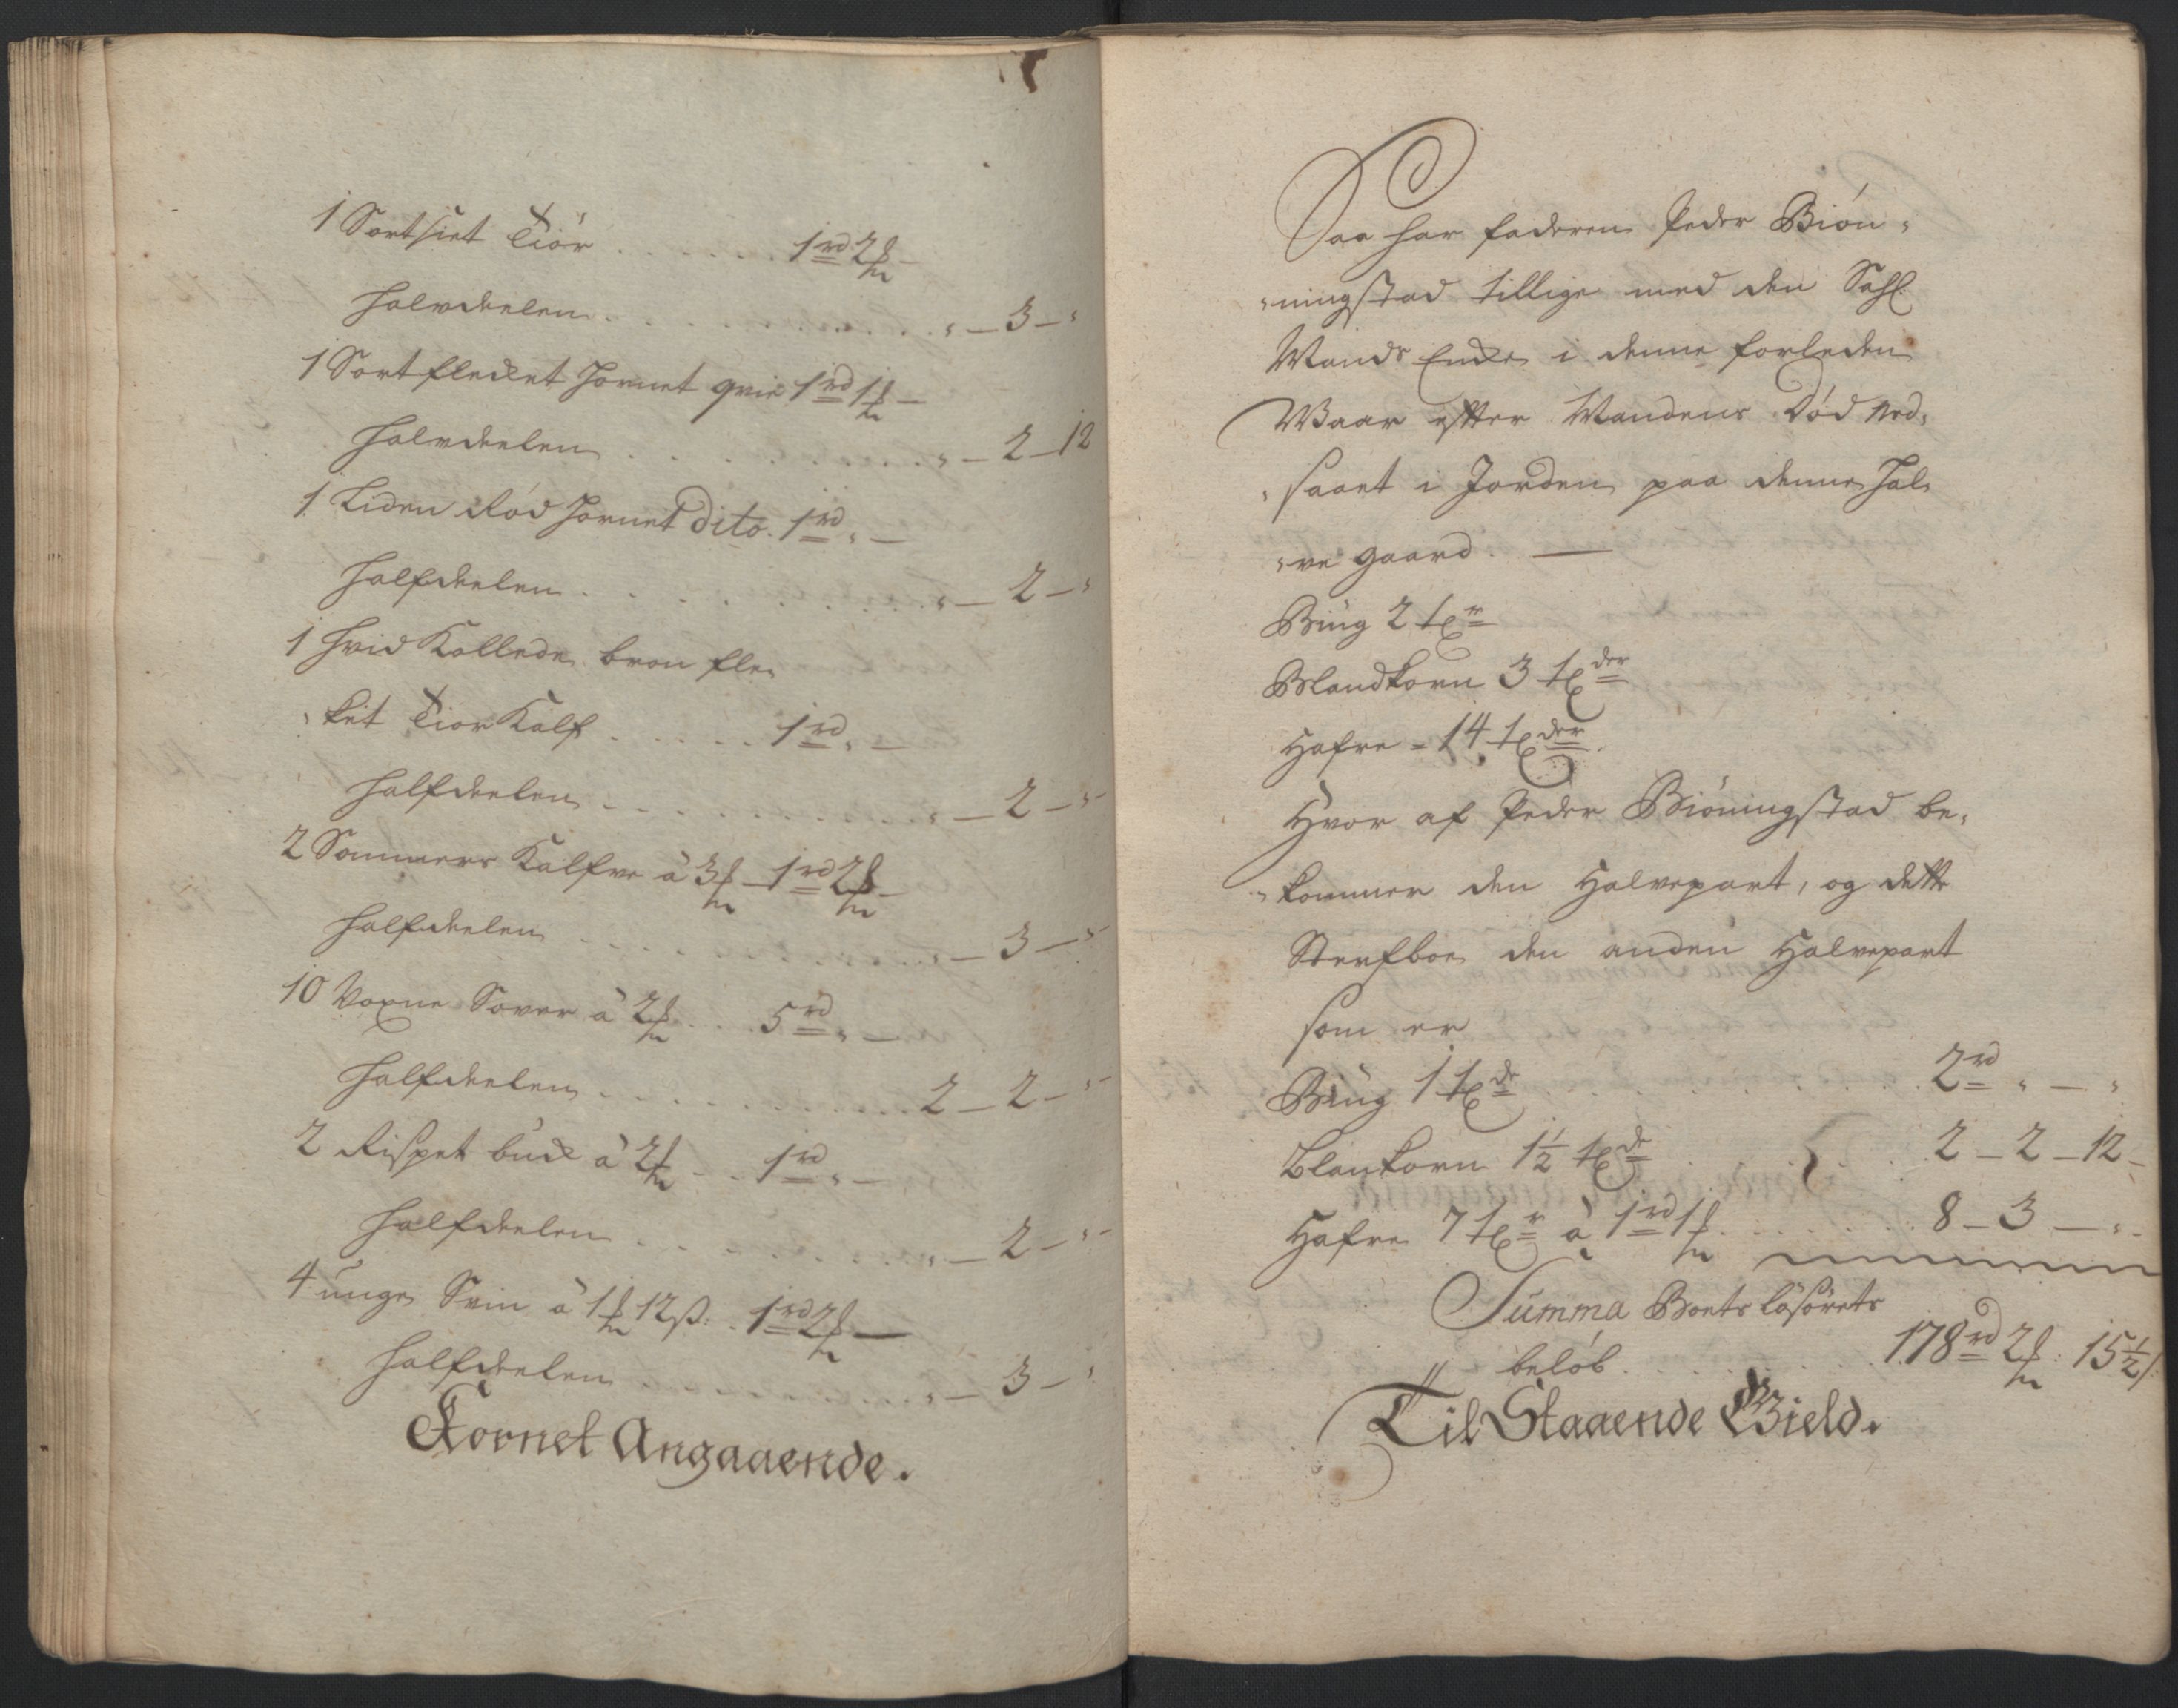 1 Sortsiet Tiór . . . . . . 1 rd 2 ℔ –
Halvdeelen . . . . . . . . . „ – 3 – „
1 Sort flecket Hornet qvie 1 rd 1 ℔ –
Halvdeelen . . . . . . . . „ – 2 – 12
1 Liden Rød Hornet Dito . 1 rd „ –
Halfdeelen . . . . . . . . „ – 2 – „
1 Hvid Kollede brun fle„
„ket Tior Kalf . . . . . 1 rd „ –
Halfdeelen . . . . . . . . „ – 2 – „
2 Sommers Kalfve à 3 ℔ – 1 rd 2 ℔ –
Halfdeelen . . . . . . . . „ – 3 – „
10 Voxne Sover à 2 ℔ . . 5 rd „ –
Halfdeelen . . . . . . . . 2 – 2 – „
2 Rispet buck à 2 ℔ – . 1 rd „ –
Halfdeelen . . . . . . . . „ – 2 – „
4 unge Svin à 1 ℔ 12 ß: . 1 rd 2 ℔ –
Halfdeelen . . . . . . . . „ – 3 – „
Kornet Angaaende.
Saa har faderen Peder Bión„
„ningstad tillige med den Sahl:
Mands Encke i denne forleden
Waar efter Mandens Død ned„
„saaet i Jorden paa denne Hal„
„ve gaard. —
Biug 2 tr
Blandkorn 3 tder
Hafre = 14 tder.
Hvor af Peder Bióningstad be„
„kommer den Halvepart, og dette
Sterfboe den anden Halvepart
som er
Biug 1 tde . . . . . . . 2 rd „ – „
Blankorn 1½ tde . . . . 2 – 2 – 12 –
Hafre 7 tr à 1 rd 1 ℔ . . . . . 8 – 3 – „
Summa Boets lösörets
belób . . . . . 178 rd 2 ℔: 15½ ß
Til Staaende Gield.